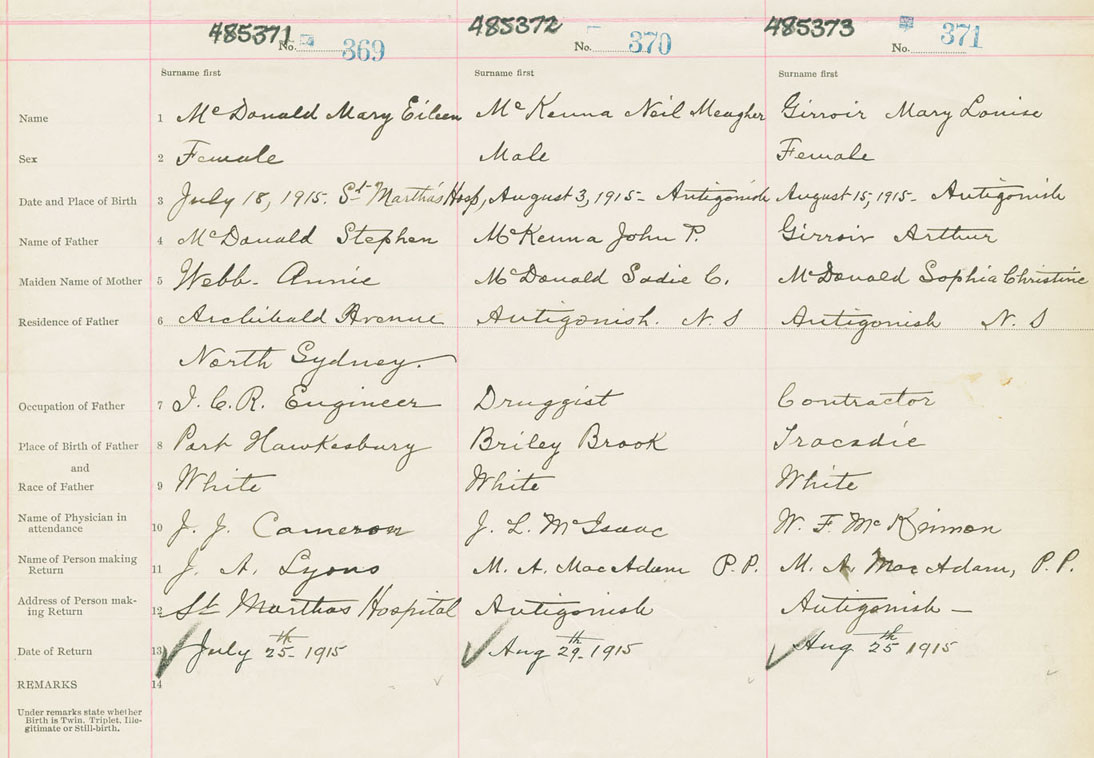 485371 485372 485373
No. 369 No. 370 No. 371
Surname first Surname first Surname first
Name 1 McDonald Mary Eileen McKenna Neil Meagher Girroir Mary Louise
Sex 2 Female Male Female
Date and Place of Birth 3 July 18, 1915. St. Martha's Hosp, August 3, 1915 - Antigonish August 15, 1915 - Antigonish
Name of Father 4 McDonald Stephen McKenna John P. Girroir Arthur
Maiden Name of Mother 5 Webb - Annie McDonald Sadie C. McDonald Sophia Christine
Residence of Father 6 Archibald Avenue Antigonish. N. S Antigonish N. S
North Sydney.
Occupation of Father 7 I. C. R. Engineer Druggist Contractor
Place of Birth of Father 8 Port Hawkesbury Briley Brook Tracadie
and
Race of Father 9 White White White
Name of Physician in
attendance 10 J. J. Cameron J. L. McIsaac W. F. McKinnon
Name of Person making
Return 11 J. A. Lyons M. A. MacAdam P.P. M. A. MacAdam, P. P.
Address of Person mak-
ing Return 12 St Marthas Hospital Antigonish Antigonish -
Date of Return 13 July 25th 1915 Aug 29th 1915 Aug 25th 1915
REMARKS 14
Under remarks state whether
Birth is Twin, Triplet, Ille-
gitimate or Still-birth.